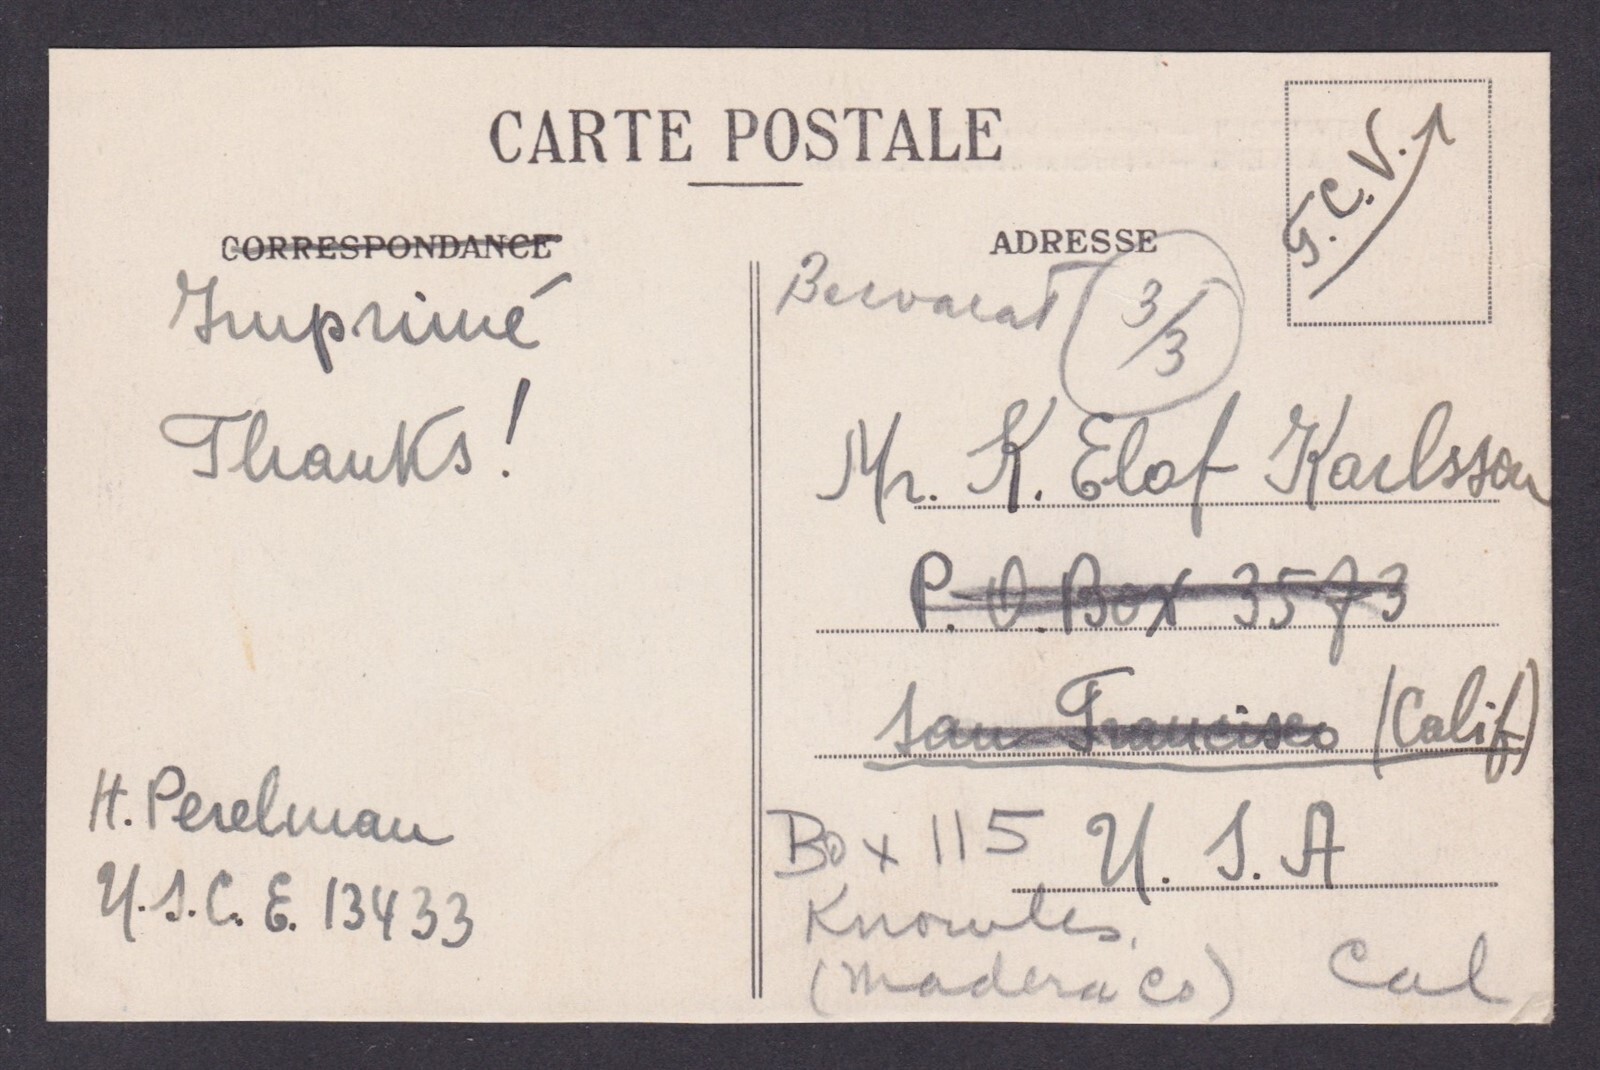 CARTE POSTALE
T.C.V.
CORRESPONDANCE
Imprimé
Thanks!
H. Perelman
U.S.C.E. 13433
ADRESSE
3/3
Mr. K. Elof Karlsson
P.O. Box 3573
San Francisco (Calif)
U. S. A
Box 115
Knowles,
(Madera Co) Cal